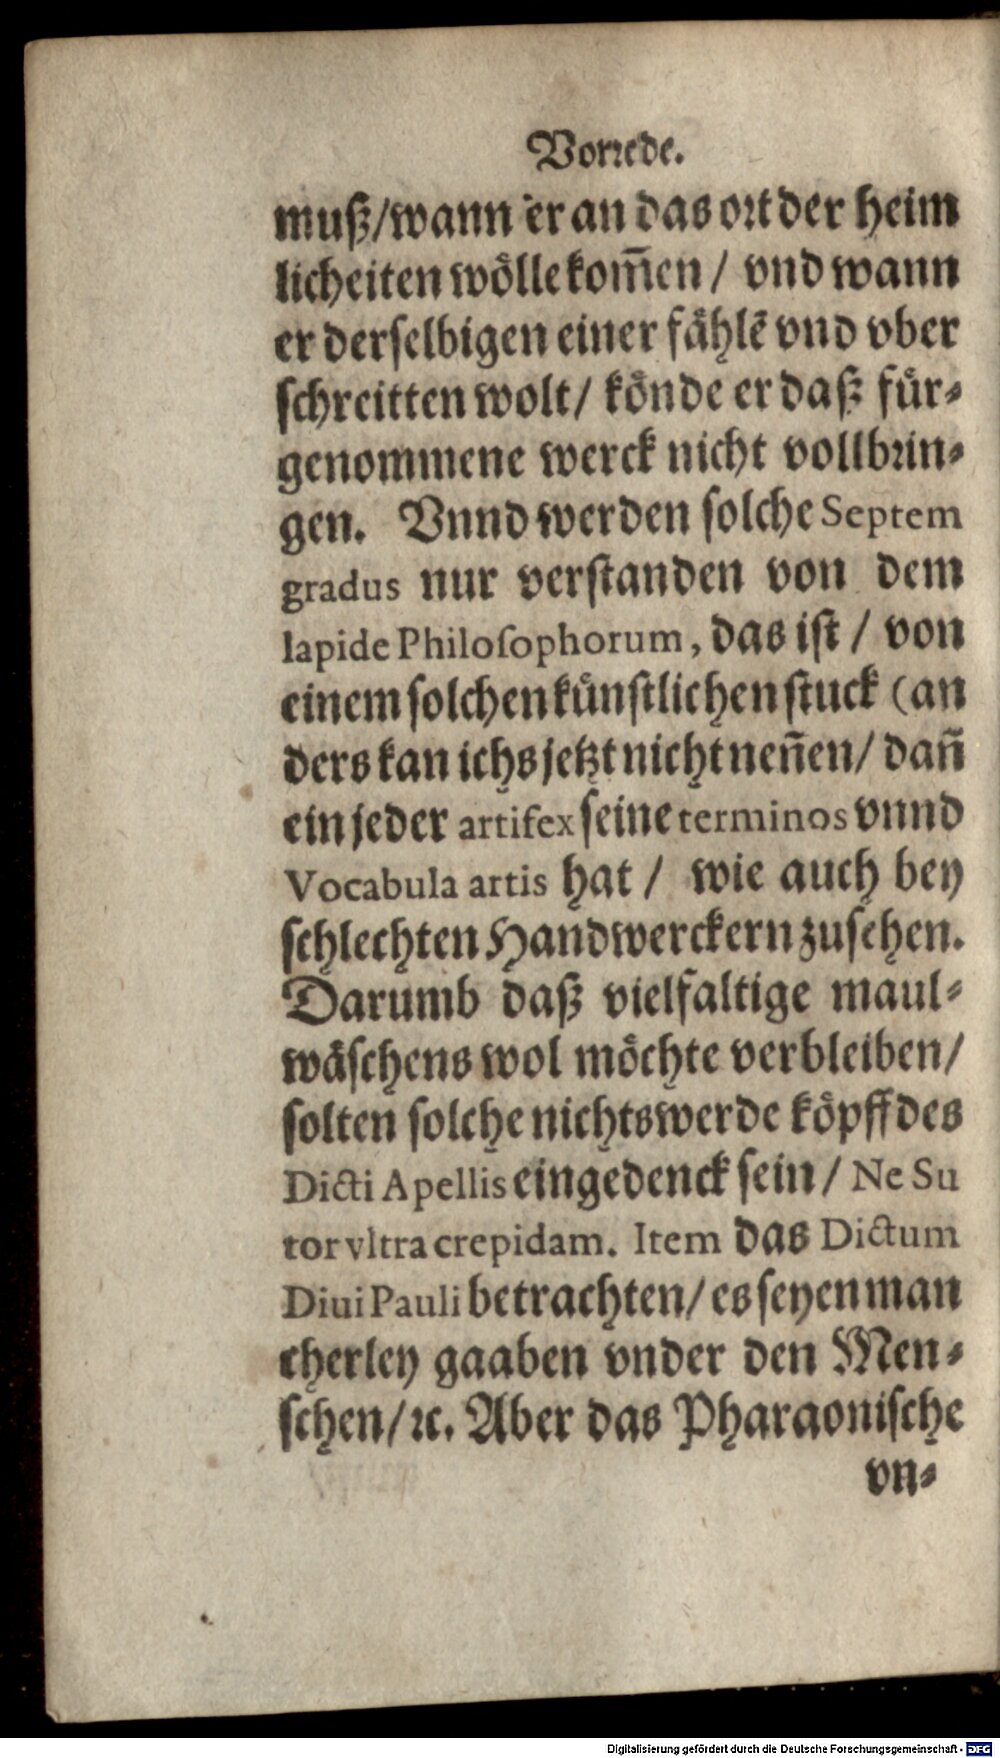 Vorrede.
muß/wann er an das ort der heim
licheiten wölle kom̃en / vnd wann
er derselbigen einer fählẽ vnd vber
schreitten wolt/ könde er daß für-
genommene werck nicht vollbrin-
gen. Vnnd werden solche Septem
gradus nur verstanden von dem
lapide Philosophorum, das ist / von
einem solchen künstlichen stuck (an
ders kan ichs jetzt nicht nen̄en/ dan̄
ein jeder artifex seine terminos vnnd
Vocabula artis hat / wie auch bey
schlechten Handwerckern zusehen.
Darumb daß vielfaltige maul-
wäschens wol möchte verbleiben/
solten solche nichtswerde köpff des
Dicti Apellis eingedenck sein / Ne Su
tor vltra crepidam. Item das Dictum
Diui Pauli betrachten/ es seyen man
cherley gaaben vnder den Men-
schen/ ꝛc. Aber das Pharaonische
vn-
Digitalisierung gefördert durch die Deutsche Forschungsgemeinschaft - DFG